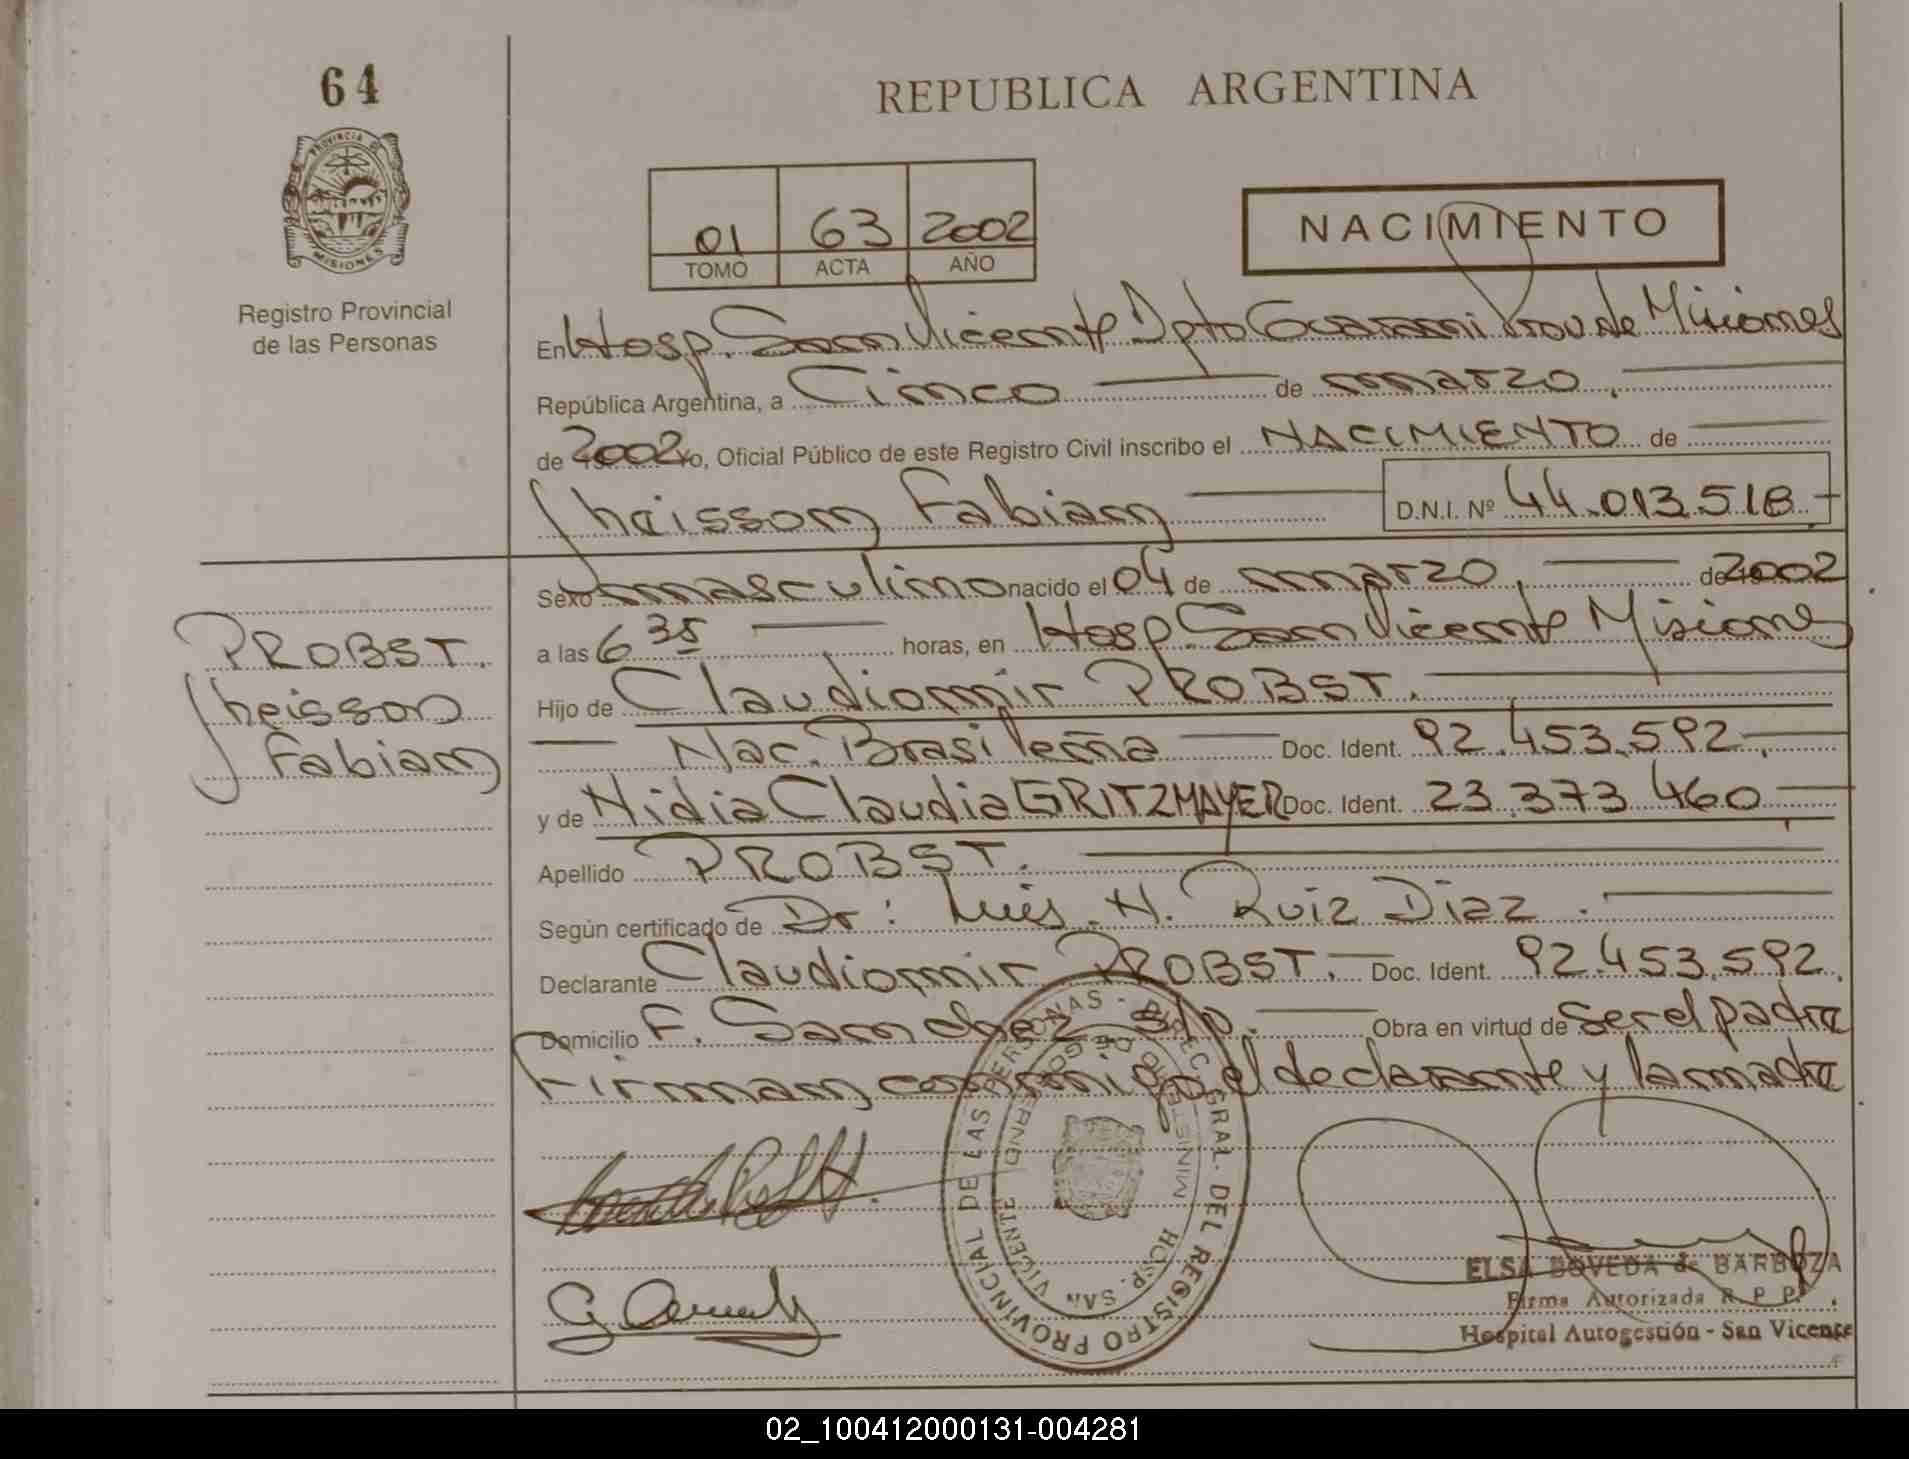 64
PROVINCIA DE
MISIONES
Registro Provincial
de las Personas
REPUBLICA ARGENTINA
01 63 2002
TOMO ACTA AÑO
NACIMIENTO
En Hosp. San Vicente Dpto Guarani Prov de Misiones
República Argentina, a Cinco de marzo.
de 2002 yo, Oficial Público de este Registro Civil inscribo el NACIMIENTO de
Jheisson Fabian D.N.I. Nº 44.013.518.
Sexo masculino nacido el 04 de marzo. de 2002
a las 6 35 horas, en Hosp. San Vicente Misiones
Hijo de Claudiomir PROBST.
Nac. Brasileña Doc. Ident. 92.453.592.
y de Nidia Claudia GRITZMAYER Doc. Ident. 23.373.460
Apellido PROBST.
Según certificado de Dr: Luis. H. Ruiz Diaz.
Declarante Claudiomir PROBST. Doc. Ident. 92.453.592.
Domicilio F. Sanchez s/n. Obra en virtud de Ser el padre
Firman conmigo el declarante y la madre
PROBST.
Jheisson
Fabian
REGISTRO PROVINCIAL DE LAS PERSONAS - DIREC. GRAL. DEL
MINISTERIO DE GOBIERNO
HOSP. SAN VICENTE
ELSA BOVEDA de BARBOZA
Firma Autorizada R. P. P.
Hospital Autogestión - San Vicente
02_100412000131-004281